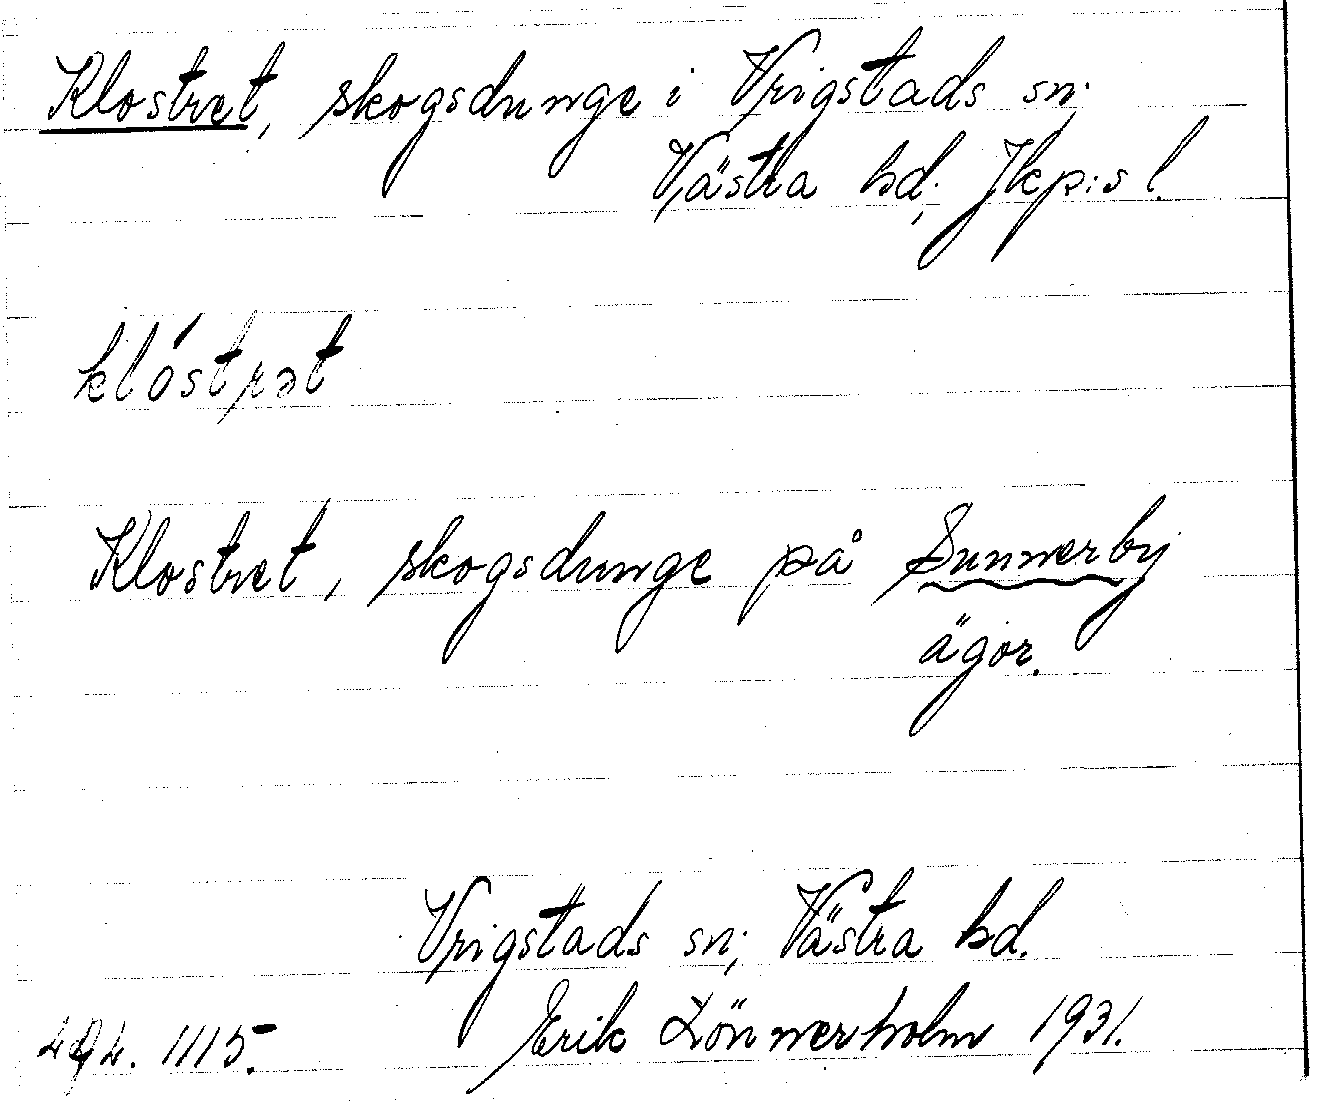 Klostret, skogsdunge i Vrigstads sn.
Västra hd; Jkp:s l.
klóstrət
Klostret, skogsdunge på Sunnerby
ägor.
Vrigstads sn; Västra hd.
Erik Lönnerholm 1931.
1115.